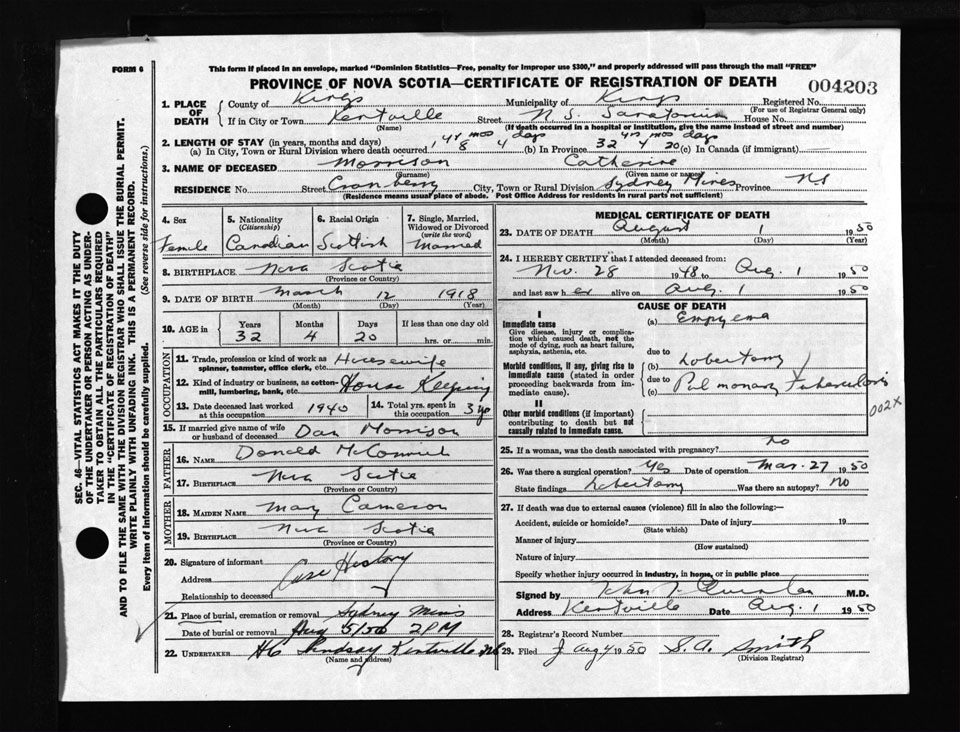 FORM 6
This form if placed in an envelope, marked "Dominion Statistics—Free, penalty for improper use $300," and properly addressed will pass through the mail "FREE"
PROVINCE OF NOVA SCOTIA—CERTIFICATE OF REGISTRATION OF DEATH
004203
1. PLACE OF DEATH County of Kings Municipality of Kings Registered No.
(For use of Registrar General only)
If in City or Town Kentville Street N.S. Sanatorium House No.
(Name) (If death occurred in a hospital or institution, give the name instead of street and number)
2. LENGTH OF STAY (in years, months and days)
(a) In City, Town or Rural Division where death occurred 8 mos 4 days (b) In Province 32 yrs 4 mos 20 days (c) In Canada (if immigrant)
3. NAME OF DECEASED Morrison Catherine
(Surname) (Given name or names)
RESIDENCE No. Street Cranberry City, Town or Rural Division Sydney Mines Province NS
(Residence means usual place of abode. Post Office Address for residents in rural parts not sufficient)
SEC. 46—VITAL STATISTICS ACT MAKES IT THE DUTY
OF THE UNDERTAKER OR PERSON ACTING AS UNDER-
TAKER TO OBTAIN ALL THE PARTICULARS REQUIRED
IN THE "CERTIFICATE OF REGISTRATION OF DEATH"
AND TO FILE THE SAME WITH THE DIVISION REGISTRAR WHO SHALL ISSUE THE BURIAL PERMIT.
WRITE PLAINLY WITH UNFADING INK. THIS IS A PERMANENT RECORD.
Every item of Information should be carefully supplied. (See reverse side for instructions.)
4. Sex Female
5. Nationality (Citizenship) Canadian
6. Racial Origin Scottish
7. Single, Married, Widowed or Divorced (write the word) Married
8. BIRTHPLACE Nova Scotia
(Province or Country)
9. DATE OF BIRTH March 12 1918
(Month) (Day) (Year)
10. AGE in Years Months Days If less than one day old
32 4 20 hrs. or min.
OCCUPATION
11. Trade, profession or kind of work as spinner, teamster, office clerk, etc. Housewife
12. Kind of industry or business, as cotton-mill, lumbering, bank, etc. House Keeping
13. Date deceased last worked at this occupation 1940
14. Total yrs. spent in this occupation 3 yrs
15. If married give name of wife or husband of deceased Dan Morrison
FATHER
16. NAME Donald
17. BIRTHPLACE Nova Scotia
(Province or Country)
MOTHER
18. MAIDEN NAME Mary Cameron
19. BIRTHPLACE Nova Scotia
(Province or Country)
20. Signature of informant Case History
Address
Relationship to deceased
21. Place of burial, cremation or removal Sydney Mines
Date of burial or removal Aug 5/50 2 PM
22. UNDERTAKER H C Lindsay Kentville NS
(Name and address)
MEDICAL CERTIFICATE OF DEATH
23. DATE OF DEATH August 1 1950
(Month) (Day) (Year)
24. I HEREBY CERTIFY that I attended deceased from:
Nov. 28 1948 to Aug. 1 1950
and last saw her alive on Aug. 1 1950
CAUSE OF DEATH
I
Immediate cause
Give disease, injury or complication which caused death, not the mode of dying, such as heart failure, asphyxia, asthenia, etc.
(a) Empyema
due to
Morbid conditions, if any, giving rise to immediate cause (stated in order proceeding backwards from immediate cause).
(b) Lobectomy
due to
(c) Pulmonary Tuberculosis
002X
II
Other morbid conditions (if important) contributing to death but not causally related to immediate cause.
25. If a woman, was the death associated with pregnancy? no
26. Was there a surgical operation? Yes Date of operation Mar. 27 1950
State findings Lobectomy Was there an autopsy? no
27. If death was due to external causes (violence) fill in also the following:—
Accident, suicide or homicide? Date of injury 19
(State which)
Manner of injury
(How sustained)
Nature of injury
Specify whether injury occurred in industry, in home, or in public place
Signed by John J. Quinlan M.D.
Address Kentville Date Aug. 1 1950
28. Registrar's Record Number
29. Filed Aug 4 1950 S.A. Smith
(Division Registrar)